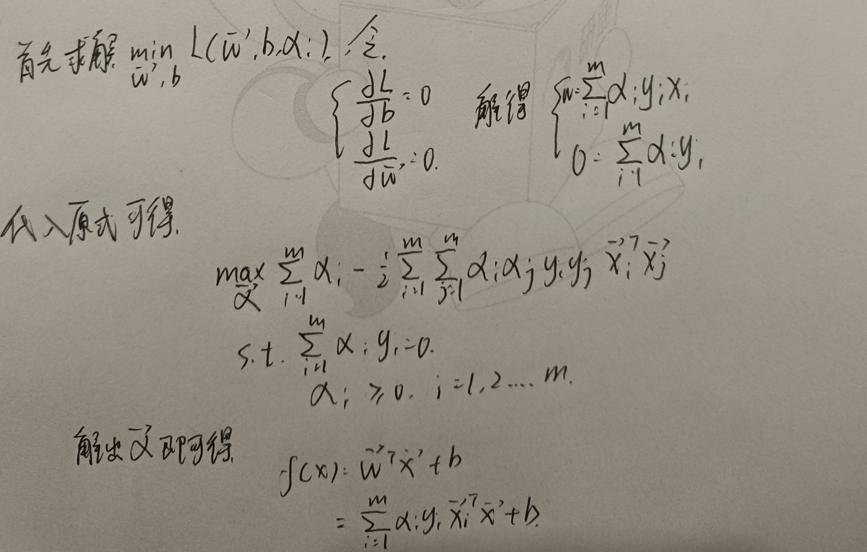 首先求解 min_{\vec{w},b} L(\vec{w},b,α_i),令
{ ∂L/∂b = 0   ∂L/∂\vec{w} = 0.   解得 { w = \sum_{i=1}^{m} α_i y_i x_i   0 = \sum_{i=1}^{m} α_i y_i
代入原式可得
max_{\vec{α}} \sum_{i=1}^{m} α_i - \frac{1}{2} \sum_{i=1}^{m} \sum_{j=1}^{m} α_i α_j y_i y_j \vec{x}_i^T \vec{x}_j
s.t. \sum_{i=1}^{m} α_i y_i = 0.
α_i ≥ 0. i = 1,2.... m.
解出 \vec{α} 即可得
f(x) = \vec{w}^T \vec{x} + b
= \sum_{i=1}^{m} α_i y_i \vec{x}_i^T \vec{x} + b.